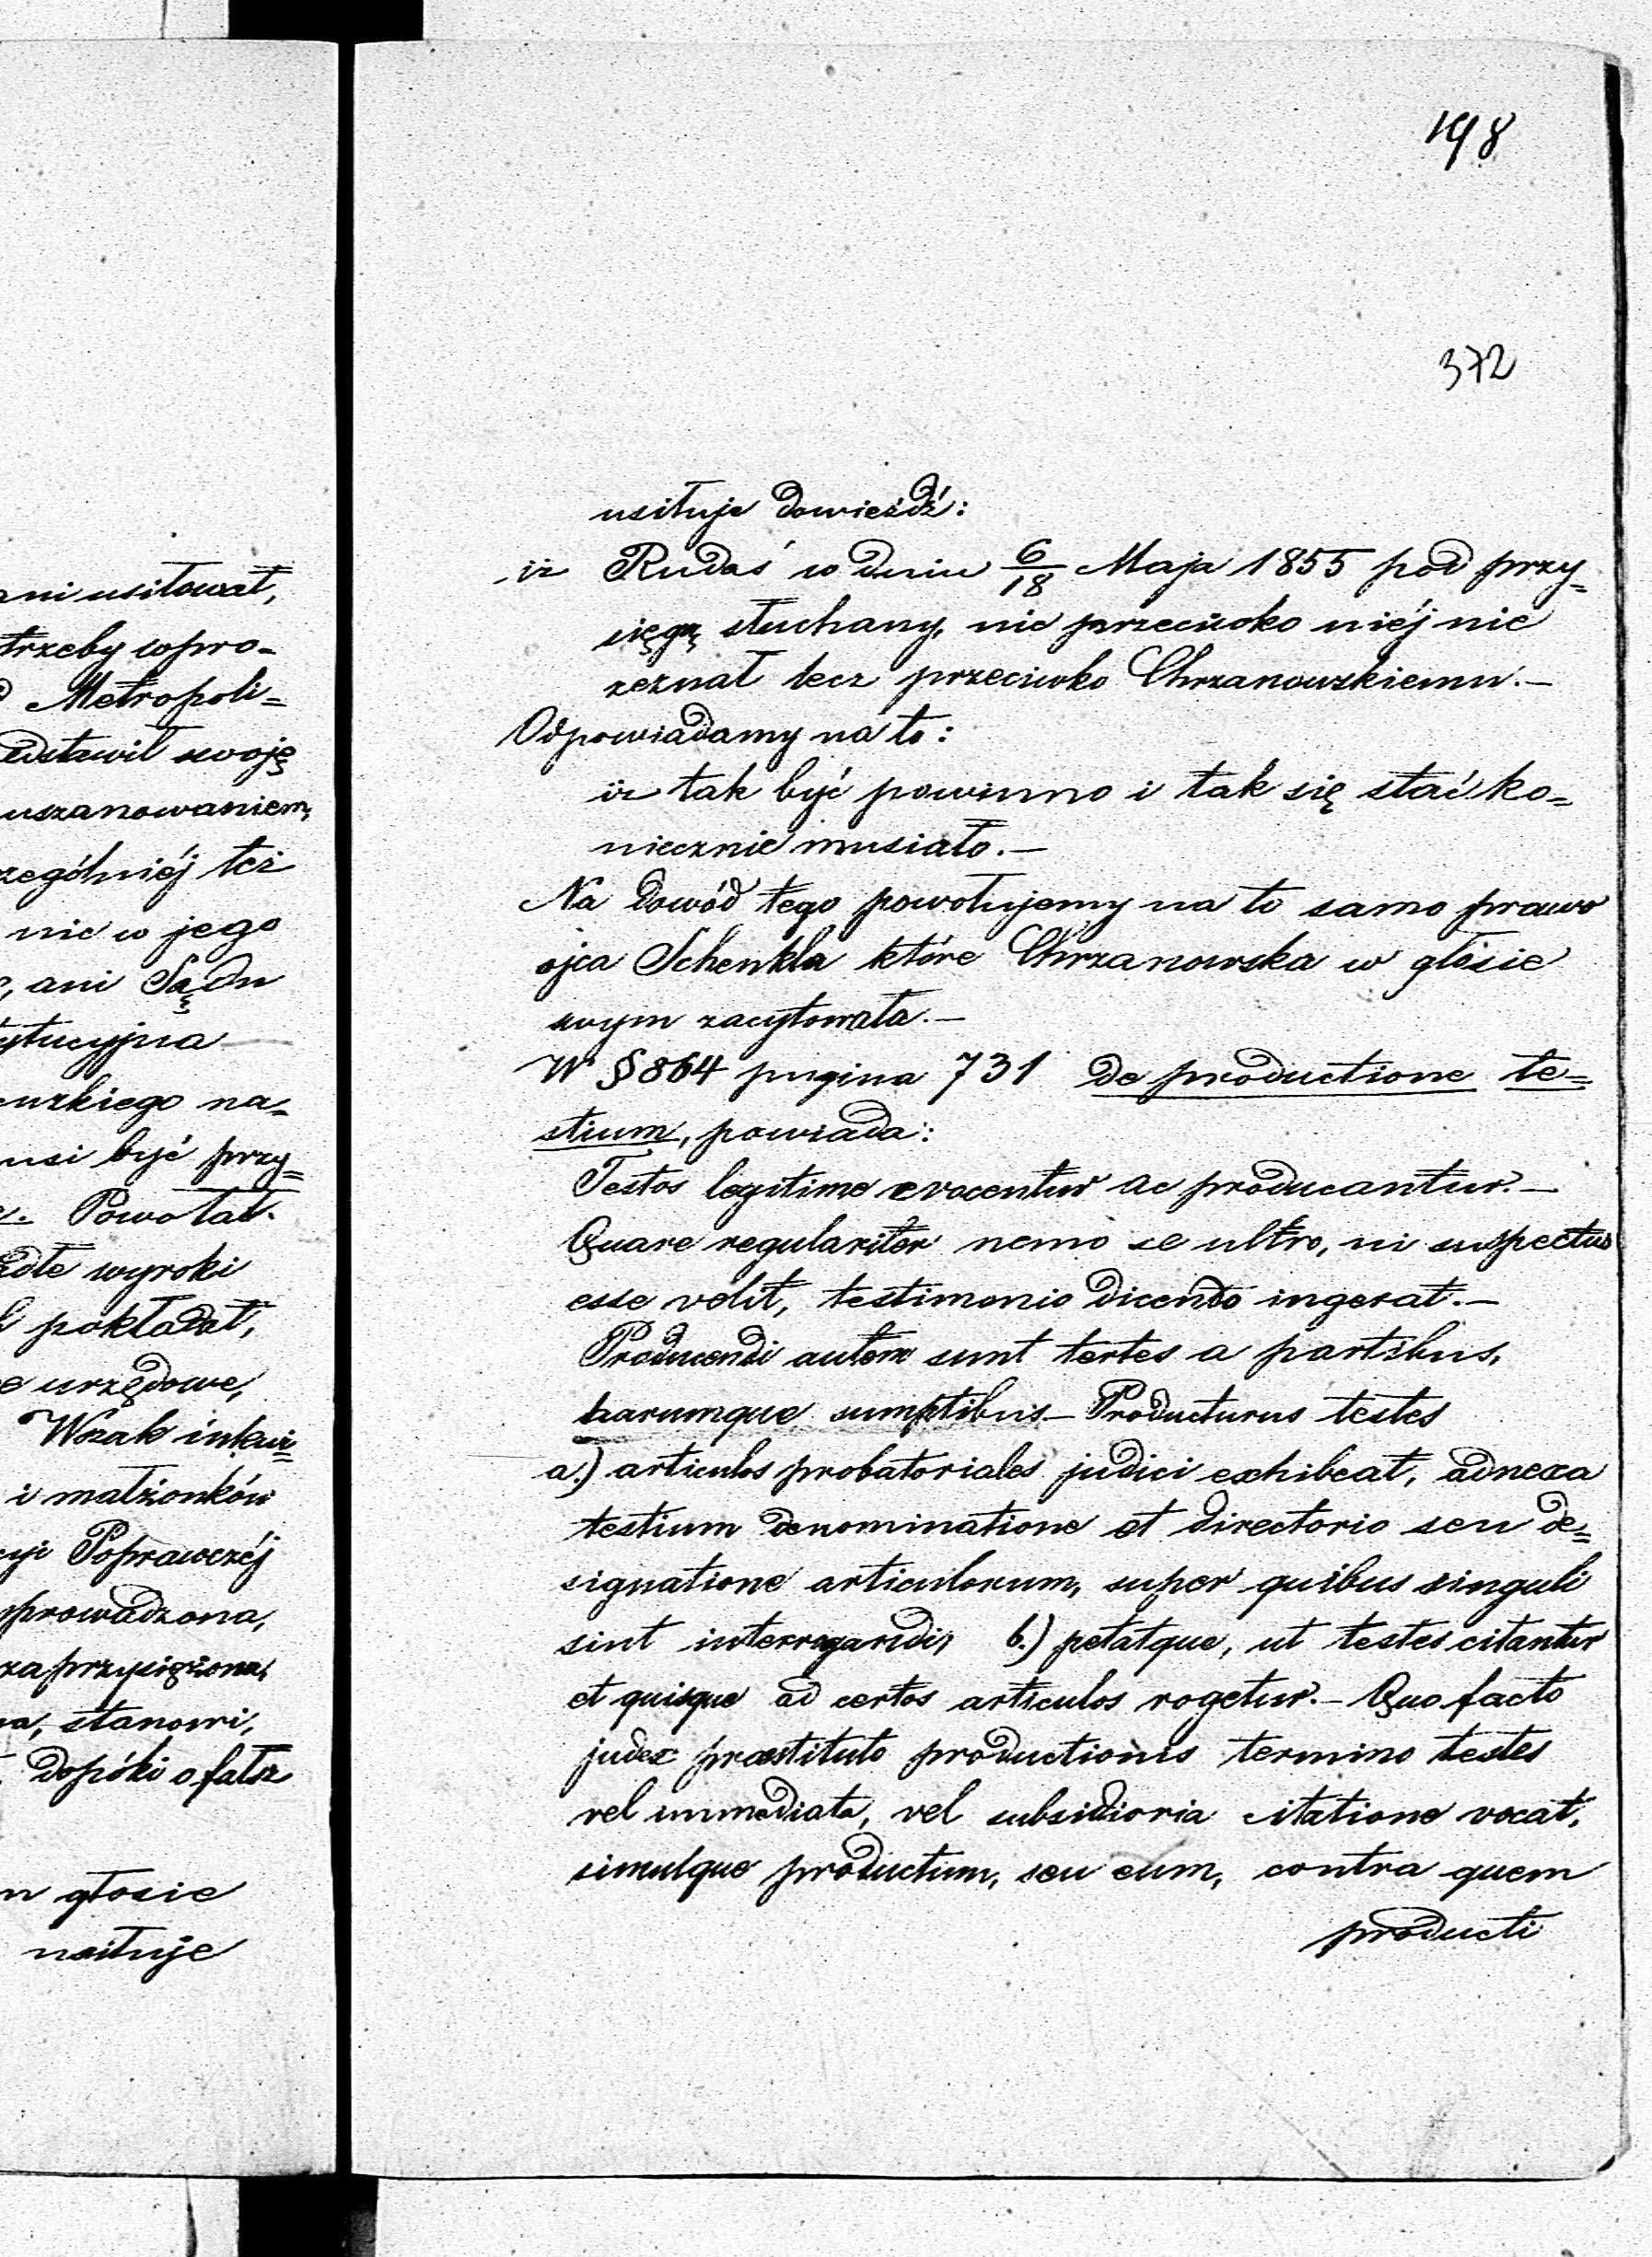 198
372
ani usiłował,
trzeby wpro-
Metropoli=
edstawił swoję
uszanowaniem,
zególniéj też
nie w jego
ani Sądu
ytucyjna
na-
usi być przy=
Powołał.
adłe wyroki
pokładał,
urzędowe,
Wszak inkwi=
i małżonków
cyi Poprawczéj
prowadzona,
zaprzysiężona,
stanowi,
dopóki o fałsz
głosie
usiłuje
usiłuje dowieźdź:
iż Rudaś w dniu 6/18 Maja 1855 pod przy=
sięgą słuchany, nic przeciwko niéj nie
zeznał lecz przeciwko Chrzanowskiemu.—
Odpowiadamy na to:
iż tak być powinno i tak się stać ko=
niecznie musiało.—
Na dowód tego powołujemy na to samo prawo
ojca Schenkla które Chrzanowska w głosie
swym zacytowała.—
W § 864 pagina 731 de productione te=
stium, powiada:
Testes legitime evocentur ac producantur.—
Quare regulariter nemo se ultro, ni suspectus
esse velit, testimonio dicendo ingerat.—
Producendi autem sunt testes a partibus,
harumque sumptibus.— Producturus testes
a.) articulos probatoriales judici exhibeat, adnexa
testium denominatione et directorio seu de=
signatione articulorum, super quibus singuli
sint interrogandi, b.) petatque, ut testes citantur
et quisque ad certos articulos rogetur.— Quo facto
judex præstituto productionis termino testes
vel immediata, vel subsidioria citatione vocat,
simulque productum, seu eum, contra quem
producti